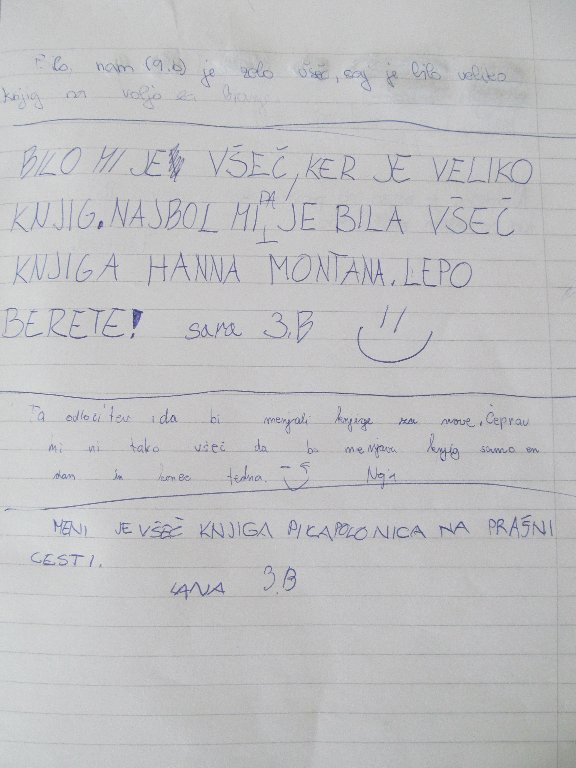 nam (9.b) je zelo všeč, saj je bilo veliko
knjig na voljo za
BILO MI JE VŠEČ, KER JE VELIKO
KNJIG. NAJBOL MI PA JE BILA VŠEČ
KNJIGA HANNA MONTANA. LEPO
BERETE! sara 3.B
Ta odločitev da bi menjali knjige za nove. Čeprav
mi ni tako všeč da bo menjava knjig samo en
dan in konec tedna.
MENI JE VŠEČ KNJIGA PIKAPOLONICA NA PRAŠNI
CESTI.
LANA 3.B